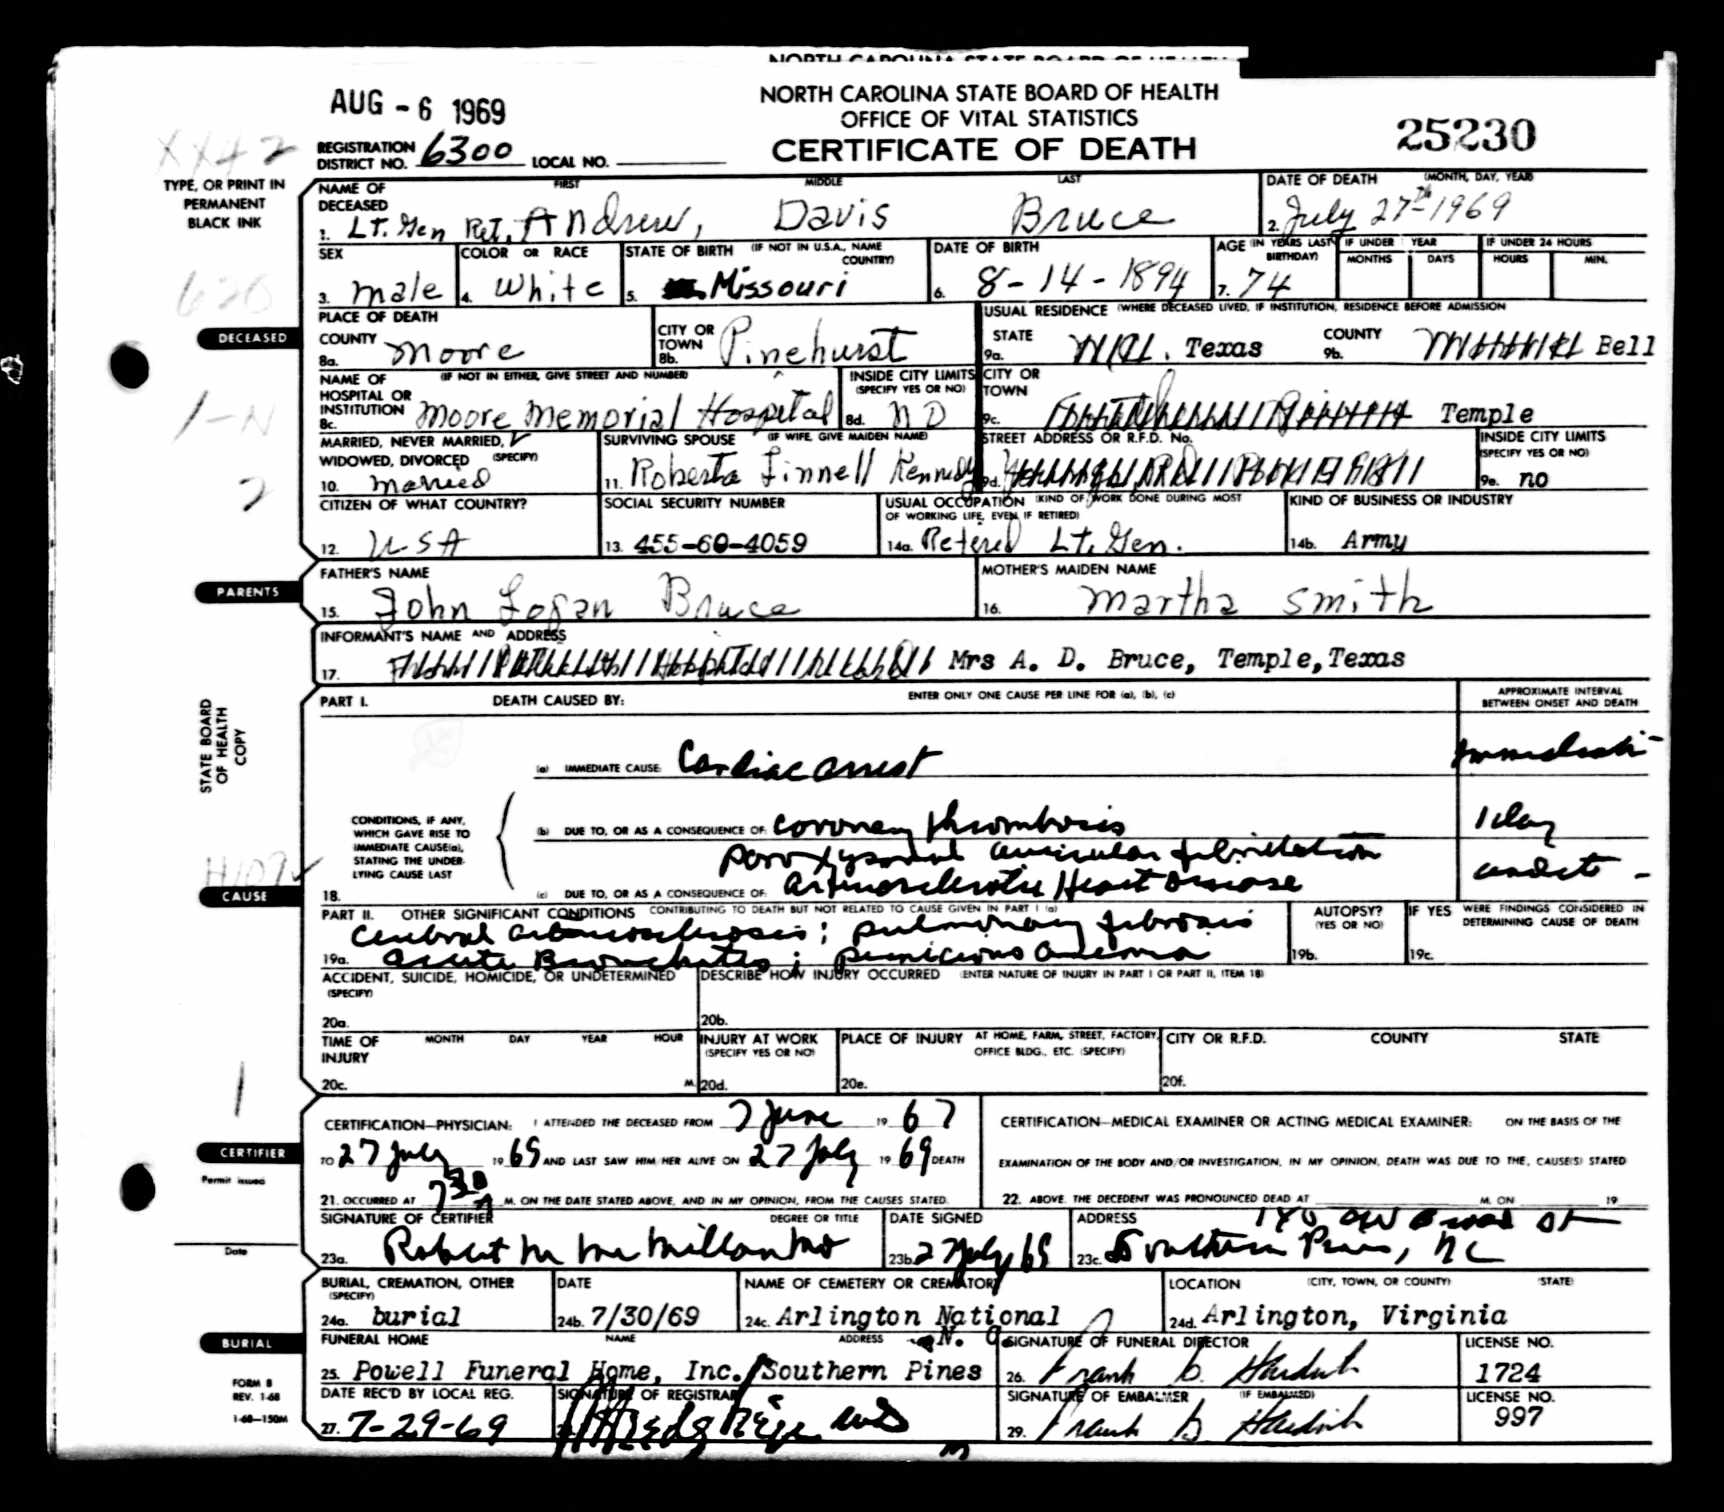 NORTH CAROLINA STATE BOARD OF HEALTH
AUG - 6 1969
NORTH CAROLINA STATE BOARD OF HEALTH
OFFICE OF VITAL STATISTICS
CERTIFICATE OF DEATH
25230
XX42
REGISTRATION DISTRICT NO. 6300 LOCAL NO.
TYPE, OR PRINT IN PERMANENT BLACK INK
NAME OF DECEASED FIRST MIDDLE LAST
1. Lt. Gen Ret. Andrew, Davis Bruce
DATE OF DEATH (MONTH, DAY, YEAR)
2. July 27th-1969
SEX
3. male
COLOR OR RACE
4. White
STATE OF BIRTH (IF NOT IN U.S.A., NAME COUNTRY)
5. Missouri
DATE OF BIRTH
6. 8-14-1894
AGE (IN YEARS LAST BIRTHDAY)
7. 74
IF UNDER 1 YEAR MONTHS DAYS
IF UNDER 24 HOURS HOURS MIN.
DECEASED
PLACE OF DEATH
COUNTY
8a. Moore
CITY OR TOWN
8b. Pinehurst
USUAL RESIDENCE (WHERE DECEASED LIVED, IF INSTITUTION, RESIDENCE BEFORE ADMISSION
STATE
9a. Texas
COUNTY
9b. Bell
NAME OF HOSPITAL OR INSTITUTION (IF NOT IN EITHER, GIVE STREET AND NUMBER)
8c. Moore Memorial Hospital
INSIDE CITY LIMITS (SPECIFY YES OR NO)
8d. NO
CITY OR TOWN
9c. Temple
1-N
MARRIED, NEVER MARRIED, WIDOWED, DIVORCED (SPECIFY)
10. married
SURVIVING SPOUSE (IF WIFE, GIVE MAIDEN NAME)
11. Roberta Linnell Kennedy
STREET ADDRESS OR R.F.D. No.
9d.
INSIDE CITY LIMITS (SPECIFY YES OR NO)
9e. no
2
CITIZEN OF WHAT COUNTRY?
12. USA
SOCIAL SECURITY NUMBER
13. 455-60-4059
USUAL OCCUPATION (KIND OF WORK DONE DURING MOST OF WORKING LIFE, EVEN IF RETIRED)
14a. Retired Lt. Gen.
KIND OF BUSINESS OR INDUSTRY
14b. Army
PARENTS
FATHER'S NAME
15. John Logan Bruce
MOTHER'S MAIDEN NAME
16. Martha Smith
INFORMANT'S NAME AND ADDRESS
17. Mrs A. D. Bruce, Temple, Texas
STATE BOARD OF HEALTH COPY
PART I. DEATH CAUSED BY: ENTER ONLY ONE CAUSE PER LINE FOR (a), (b), (c)
APPROXIMATE INTERVAL BETWEEN ONSET AND DEATH
(a) IMMEDIATE CAUSE: Cardiac arrest
CONDITIONS, IF ANY, WHICH GAVE RISE TO IMMEDIATE CAUSE(a), STATING THE UNDERLYING CAUSE LAST
(b) DUE TO, OR AS A CONSEQUENCE OF: coronary thrombosis 1 day
paroxysmal auricular fibrillation
18. (c) DUE TO, OR AS A CONSEQUENCE OF: arteriosclerotic Heart Disease
CAUSE
PART II. OTHER SIGNIFICANT CONDITIONS CONTRIBUTING TO DEATH BUT NOT RELATED TO CAUSE GIVEN IN PART I (a)
Cerebral arteriosclerosis; pulmonary fibrosis
19a. acute Bronchitis; pernicious anemia
AUTOPSY? (YES OR NO)
19b.
IF YES WERE FINDINGS CONSIDERED IN DETERMINING CAUSE OF DEATH
19c.
ACCIDENT, SUICIDE, HOMICIDE, OR UNDETERMINED (SPECIFY)
20a.
DESCRIBE HOW INJURY OCCURRED (ENTER NATURE OF INJURY IN PART I OR PART II, ITEM 18)
20b.
TIME OF INJURY MONTH DAY YEAR HOUR
20c. M.
INJURY AT WORK (SPECIFY YES OR NO)
20d.
PLACE OF INJURY AT HOME, FARM, STREET, FACTORY, OFFICE BLDG., ETC. (SPECIFY)
20e.
CITY OR R.F.D. COUNTY STATE
20f.
CERTIFIER
Permit issued
Date
CERTIFICATION—PHYSICIAN: I ATTENDED THE DECEASED FROM 7 June 1967
TO 27 July 1969 AND LAST SAW HIM/HER ALIVE ON 27 July 1969 DEATH
21. OCCURRED AT 7:30 A M. ON THE DATE STATED ABOVE, AND IN MY OPINION, FROM THE CAUSES STATED.
CERTIFICATION—MEDICAL EXAMINER OR ACTING MEDICAL EXAMINER: ON THE BASIS OF THE
EXAMINATION OF THE BODY AND/OR INVESTIGATION, IN MY OPINION, DEATH WAS DUE TO THE, CAUSE(S) STATED
22. ABOVE. THE DECEDENT WAS PRONOUNCED DEAD AT M. ON 19
SIGNATURE OF CERTIFIER DEGREE OR TITLE
23a. Robert M McMillan MD
DATE SIGNED
23b. 27 July 69
ADDRESS
23c. SW Broad St Southern Pines, NC
BURIAL, CREMATION, OTHER (SPECIFY)
24a. burial
DATE
24b. 7/30/69
NAME OF CEMETERY OR CREMATORY
24c. Arlington National
LOCATION (CITY, TOWN, OR COUNTY) (STATE)
24d. Arlington, Virginia
BURIAL
FUNERAL HOME NAME ADDRESS
25. Powell Funeral Home, Inc. Southern Pines N. C
SIGNATURE OF FUNERAL DIRECTOR
26. Frank B.
LICENSE NO.
1724
FORM 8
REV. 1-68
1-68—150M
DATE REC'D BY LOCAL REG.
27. 7-29-69
SIGNATURE OF REGISTRAR
SIGNATURE OF EMBALMER (IF EMBALMED)
29. Frank B.
LICENSE NO.
997